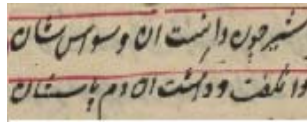 شیر چون دانست آن وسواسشان
وا نگفت و داشت آن دم پاسشان